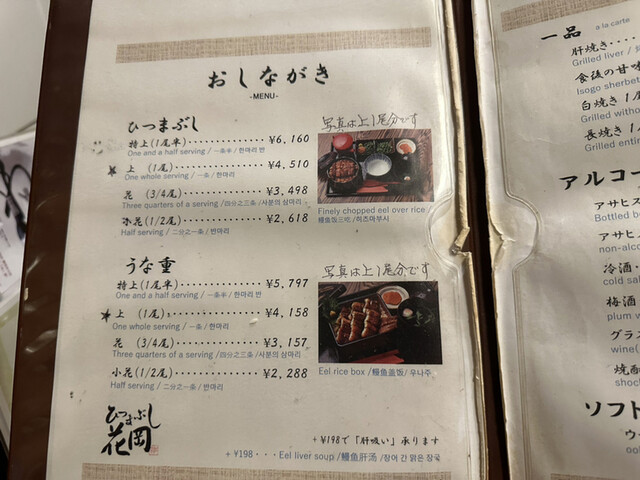 おしながき
-MENU-
ひつまぶし
特上(1尾半) ¥6,160
One and a half serving / 一条半 / 한마리 반
上 (1尾) ¥4,510
One whole serving / 一条 / 한마리
花 (3/4尾) ¥3,498
Three quarters of a serving / 四分之三条 / 사분의 삼마리
小花(1/2尾) ¥2,618
Half serving / 二分之一条 / 반마리
写真は上1尾分です
Finely chopped eel over rice /
鳗鱼饭三吃 / 히츠마부시
うな重
特上(1尾半) ¥5,797
One and a half serving / 一条半 / 한마리 반
上 (1尾) ¥4,158
One whole serving / 一条 / 한마리
花 (3/4尾) ¥3,157
Three quarters of a serving / 四分之三条 / 사분의 삼마리
小花(1/2尾) ¥2,288
Half serving / 二分之一条 / 반마리
写真は上1尾分です
Eel rice box / 鳗鱼盖饭 / 우나주
ひつまぶし
花岡
+¥198で「肝吸い」承ります
+ ¥198・・・Eel liver soup / 鳗鱼肝汤 / 장어 간 맑은 장국
一品 a la carte
肝焼き
Grilled liver /
食後の甘味
Isogo sherbet
白焼き 1尾
Grilled without
長焼き 1尾
Grilled
アルコー
アサヒス
Bottled b
アサヒ
non-alco
冷酒
cold sa
梅酒
plum w
グラス
wine(
焼酎
shoc
ソフト
ウー
ool